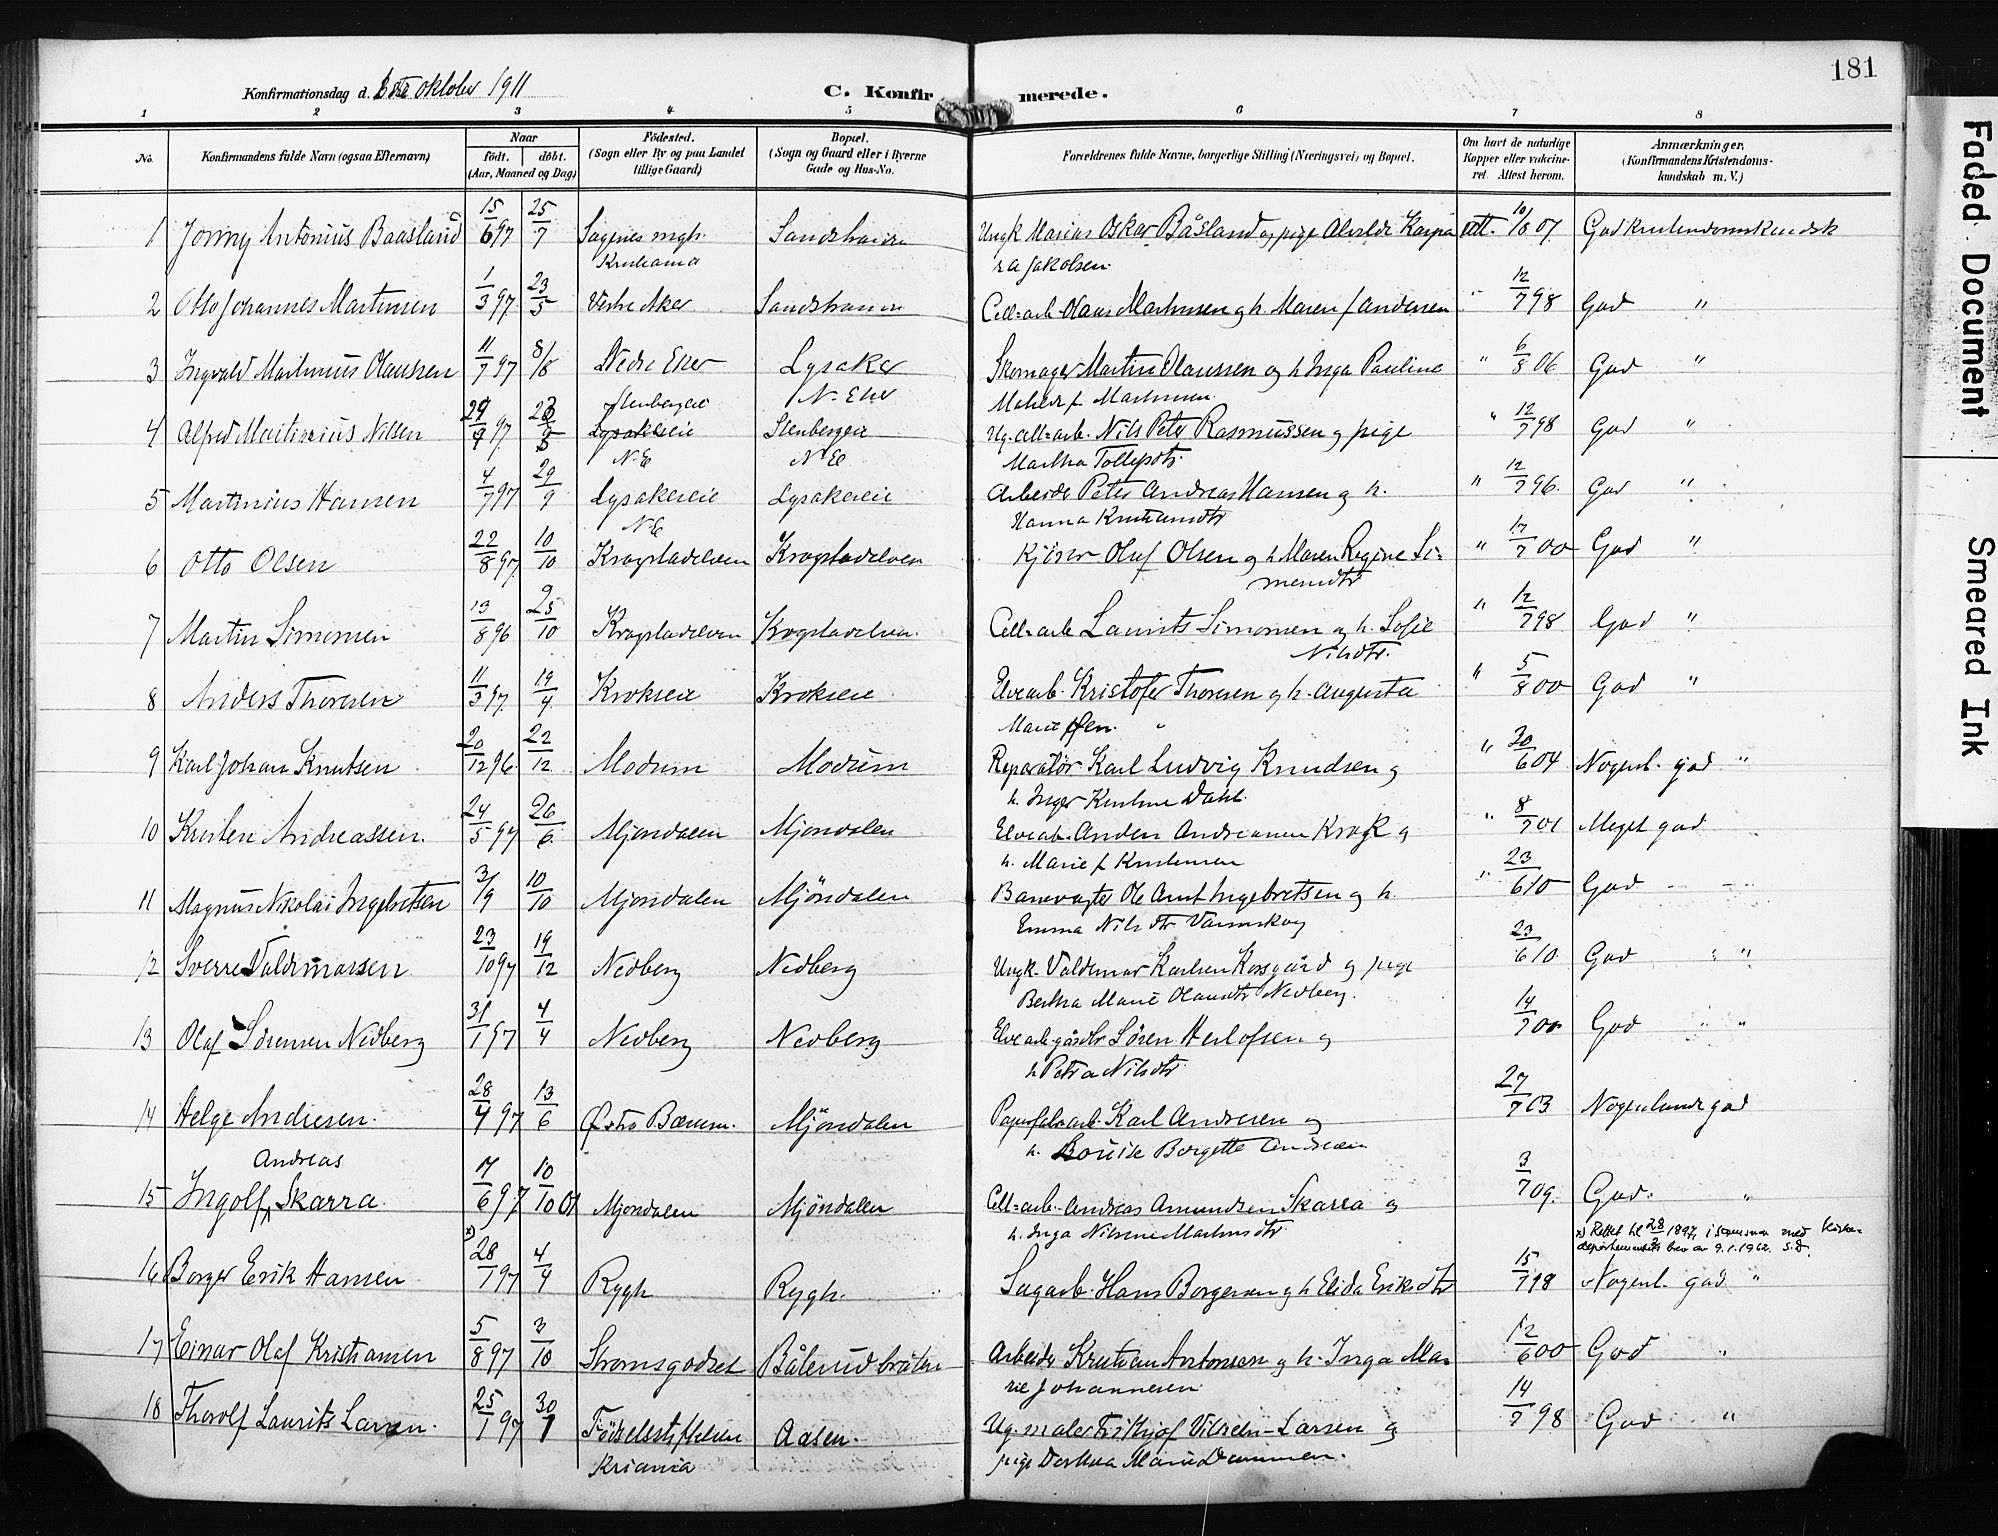 181
Konfirmationsdag d. oktober 1911
C. Konfirmerede.
1 2 3 4 5 6 7 8
No.
Konfirmandens fulde Navn (ogsaa Efternavn)
Naar
født. døbt.
(Aar, Maaned og Dag)
Fødested.
(Sogn eller By og paa Landet
tillige Gaard)
Bopæl.
(Sogn og Gaard eller i Byerne
Gade og Hus-No.
Forældrenes fulde Navne, borgerlige Stilling (Næringsvei) og Bopæl.
Om havt de naturlige
Kopper eller vakcine-
ret. Attest herom.
Anmærkninger.
(Konfirmandens Kristendoms-
kundskab m. V.)
1 Jonny Antonius Baasland 15/6 97 25/7 Sagenes mgh. Sandstranden Ungk Marius Oskar Båsland og pige Alvilde Kaspa att. 10/8 07 God kristendomskundsk
Kristiania ra Jakobsen.
2 Otto Johannes Martinsen 1/3 97 23/5 Vestre Aker Sandstranden Cell=arb. Olaus Martinsen og h. Maren f Andersen " 12/7 98 God "
3 Ingvald Martinius Olaussen 11/7 97 8/8 Nedre Eker Lysaker Skomager Martin Olaussen og h Inga Pauline " 6/8 06 God "
N. Eker Mathilde f. Martinsen.
Stenbergeie
4 Alfred Martinius Nilsen 97 Lysakereie Stenbergeie Ug. cell=arb. Nils Peter Rasmussen og pige " 12/7 98 God "
N.E. N.E. Martha Tollefsdtr.
5 Martinius Hansen 4/7 97 29/9 Lysakereie Lysakereie Arbeider Peter Andreas Hansen og h. " 12/7 96. God "
N.E. Hanna Kristiansdtr
6 Otto Olsen 22/8 97. 10/10 Krogstadelven Krogstadelven Kjører Oluf Olsen og h Maren Regine Si= " 17/7 00 God "
mensdtr
7 Martin Simonsen 13/8 96 25/10 Krogstadelven Krogstadelven. Cell=arb Laurits Simonsen og h. Sofie " 12/7 98 God "
Nilsdtr.
8 Anders Thoresen 11/3 97. 19/4 Krokseie Krokseie Elvearb. Kristofer Thoresen og h. Augusta " 5/8 00 God "
Marie Øen.
9 Karl Johan Knutsen 20/12 96. 22/12 Modum Modum Reparatør Karl Ludvig Knudsen og " 30/6 04 Nogenl. god "
h. Inger Kristine Dahl.
10 Kristen Andreassen. 24/5 97 26/6. Mjøndalen Mjøndalen Elvearb. Anders Andreassen Krogk og " 8/7 01 Meget god
h. Marie f Kristensen
11 Magnus Nikolai Ingebretsen 3/9 10/10 Mjøndalen Mjöndalen Banevogter Ole Amt Ingebretsen og h. " 23/6 10 God
Emma Nilsdtr Varnskog
12 Sverre Valdemarsen. 23/10 97 19/12 Nedberg Nedberg Ungk. Valdemar Karlsen Korsgård og pige 23/6 10. God " "
Bertha Marie Olausdtr Nedberg.
13 Olaf Sørensen Nedberg 31/1 97 4/4 Nedberg Nedberg Elvearb. gårdbr Søren Herlofsen og 14/7 00 God " "
h Petra Nilsdtr.
14 Helge Andresen. 28/4 97 13/6 Østre Bærum. Mjöndalen Papirfabarb. Karl Andresen og 27/7 03 Nogenlunde god
h. Louise Borgette Andresen
Andreas
15 Ingolf Skarra. 17/6 97 10/10 01 Mjøndalen Mjöndalen Cell=arb. Andreas Amundsen Skarra og 3/7 09. God. "
h. Inga Nilsine Martinsdtr
x) Rettet til 28/ 1897, i samsvar med Kirke-
departementets brev av 9.1.1962. S.D.
16 Borger Erik Hansen x) 28/1 97 4/4 Rygh Rygh. Sagarb. Hans Borgersen og h Elida Eriksdtr 15/7 98 Nogenl. god "
17 Einar Olaf Kristiansen 5/8 97 3/10 Strømsgodset Bålerud bråten Arbeider Kristian Antonsen og h. Inga Ma= 12/6 00 God "
rie Johannesen
18 Thorolf Laurits Larsen. 25/1 97 30/ Födselsstiftelsen Aasen. Ug. maler Fritjof Vilhelm Larsen og 14/7 98 God "
Kriania pige Dorthea Marie Dammen.
Faded Document
Smeared Ink